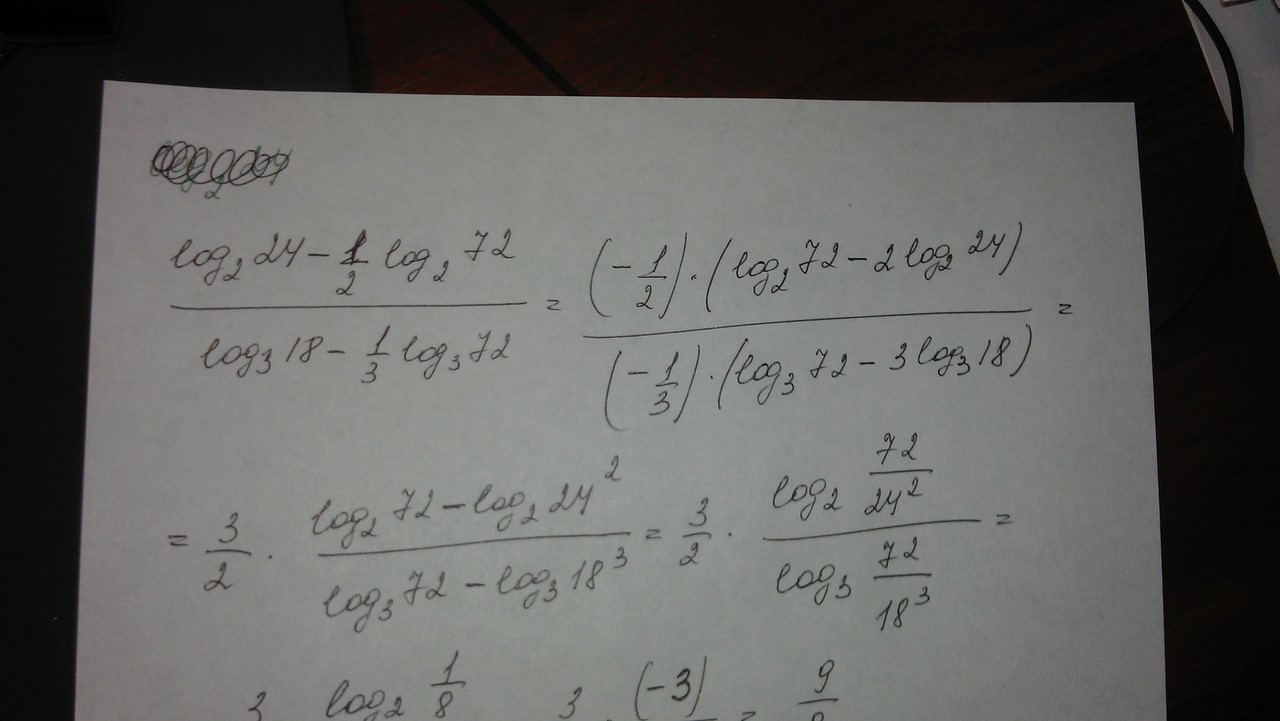 (log₂ 24 − 1/2 log₂ 72) / (log₃ 18 − 1/3 log₃ 72) = ((−1/2) · (log₂ 72 − 2 log₂ 24)) / ((−1/3) · (log₃ 72 − 3 log₃ 18)) =
= 3/2 · (log₂ 72 − log₂ 24²) / (log₃ 72 − log₃ 18³) = 3/2 · (log₂ 72/24²) / (log₃ 72/18³) =
3 log₂ 1/8 3 · (−3) = 9